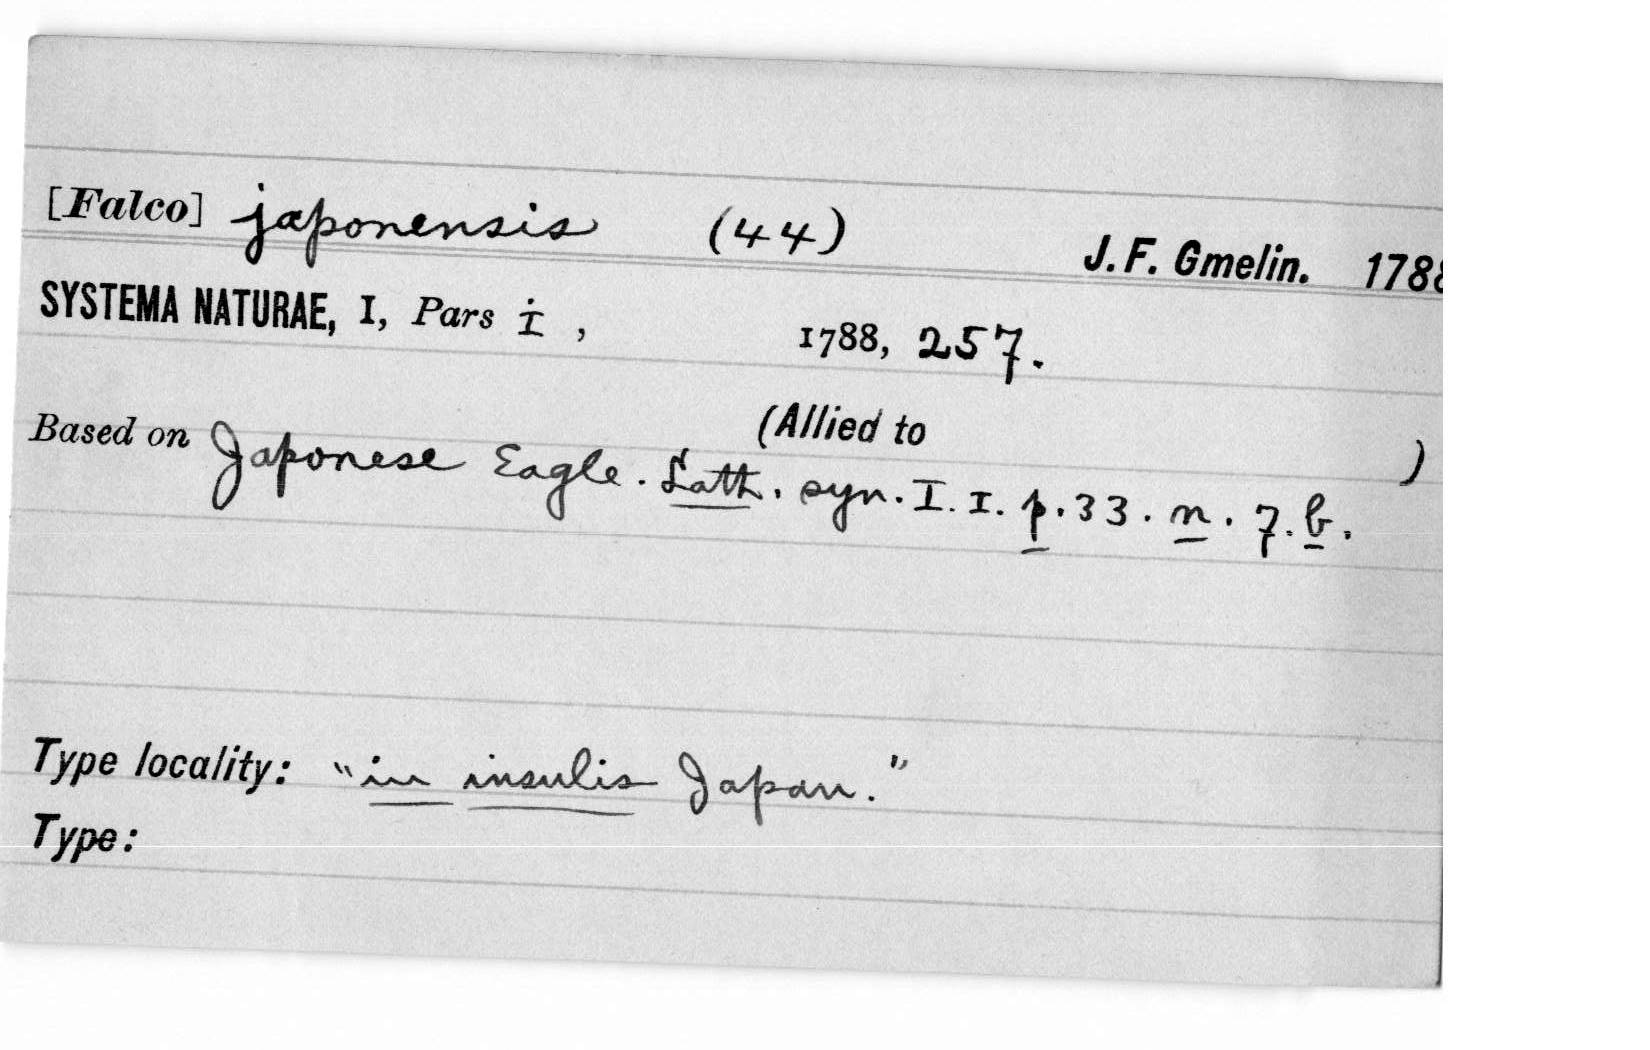 [Falco] japonensis (44) J. F. Gmelin. 1788
SYSTEMA NATURAE, I, Pars i, 1788, 257.
(Allied to )
Based on Japonese Eagle. Lath. syn. I. I. p. 33. n. 7. b.
Type locality: "in insulis Japan."
Type: